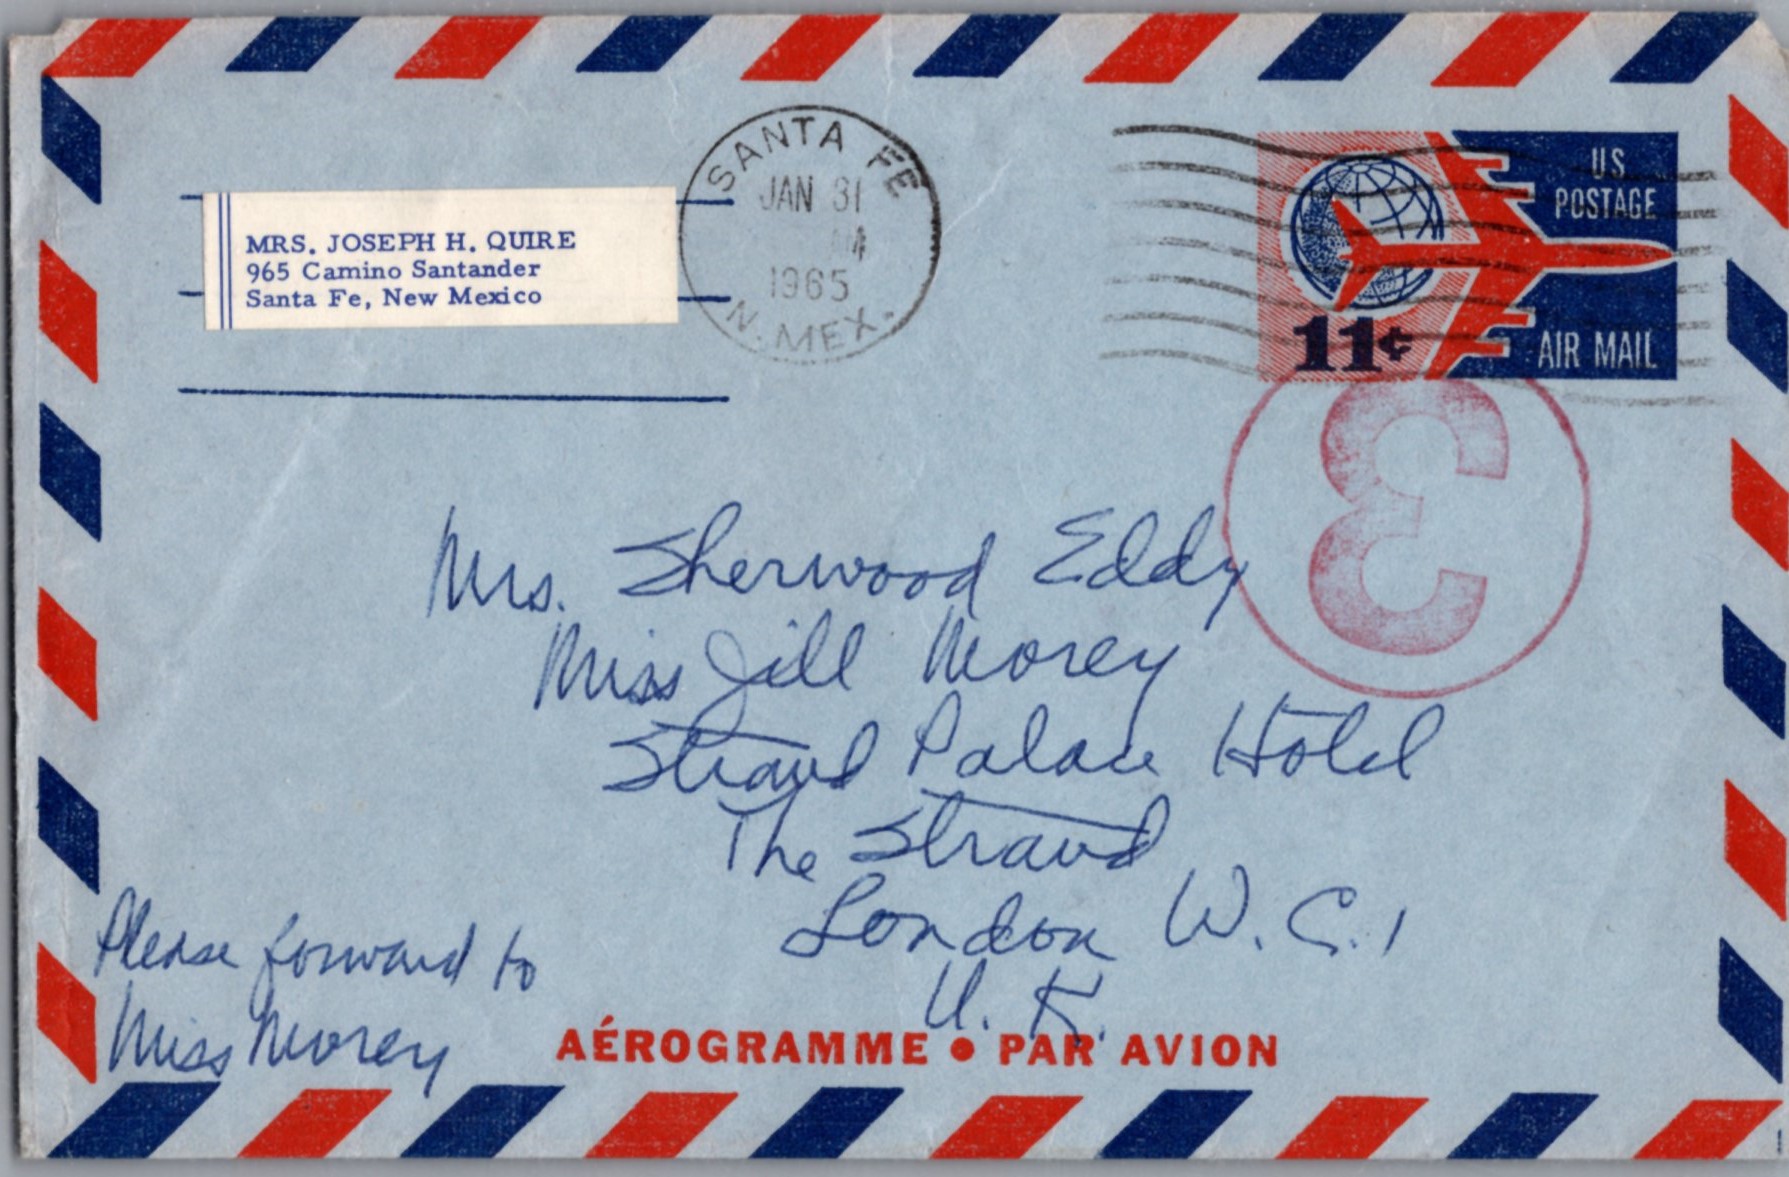 MRS. JOSEPH H. QUIRE
965 Camino Santander
Santa Fe, New Mexico
SANTA FE
JAN 31
AM
1965
N. MEX.
U S
POSTAGE
11¢
AIR MAIL
3
Mrs. Sherwood Eddy
Miss Jill Morey
Strand Palace Hotel
The Strand
London W.C.1
U.K.
Please forward to
Miss Morey
AÉROGRAMME • PAR AVION